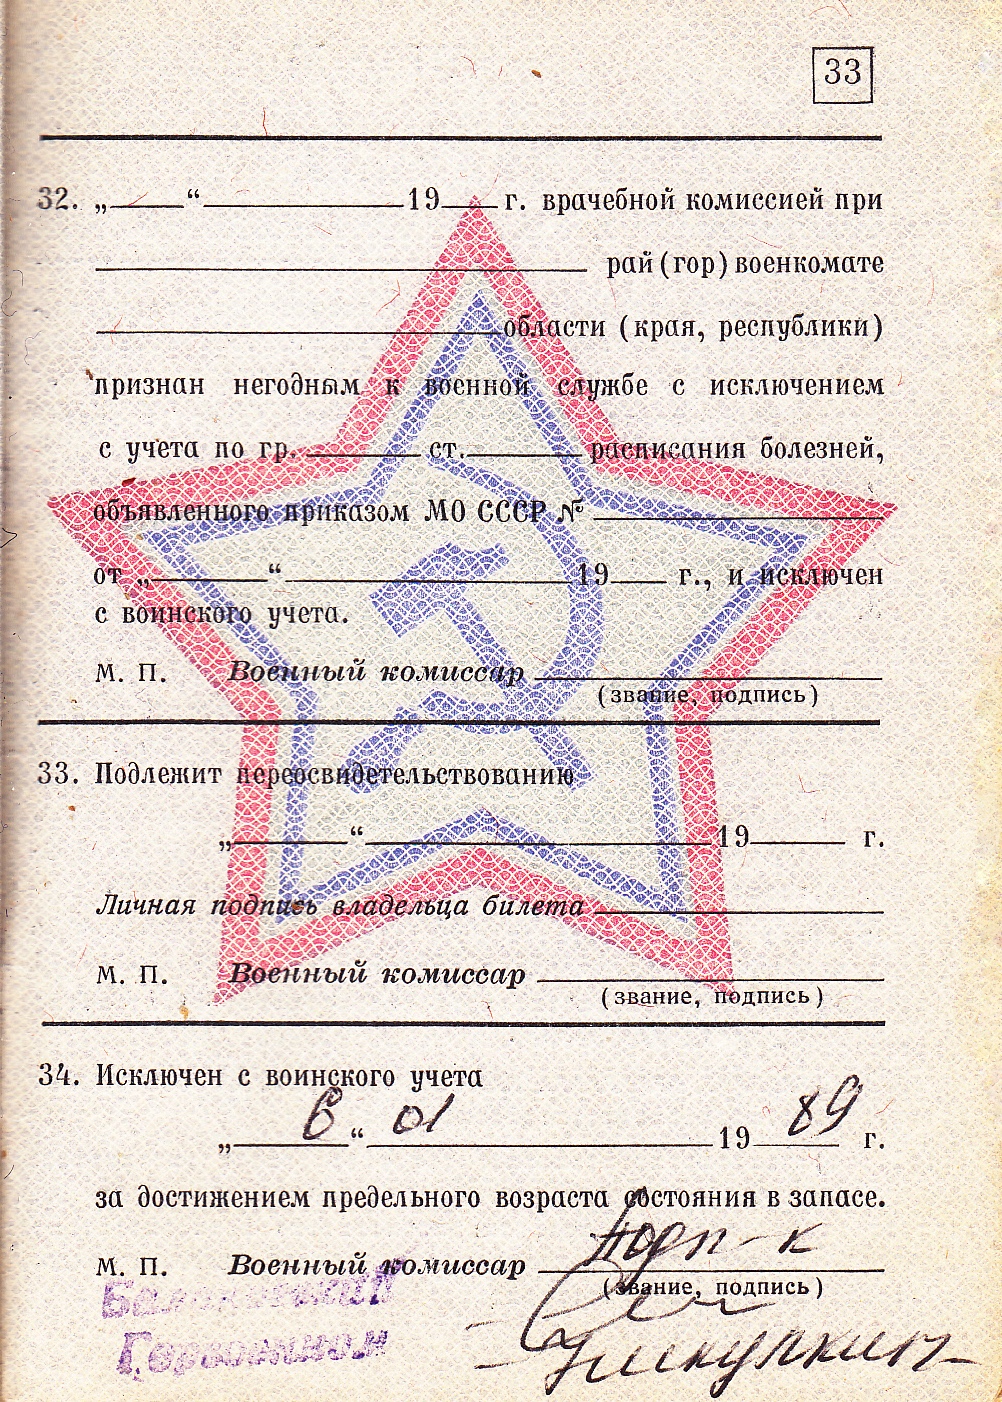 33
32. „____“____________19___г. врачебной комиссией при
____________________ рай (гор) военкомате
____________________области (края, республики)
признан негодным к военной службе с исключением
с учета по гр.______ ст.______расписания болезней,
объявленного приказом МО СССР №____________
от „______“______________19___ г., и исключен
с воинского учета.
М. П. Военный комиссар ______________
(звание, подпись)
33. Подлежит переосвидетельствованию
„______“______________19____ г.
Личная подпись владельца билета ____________
М. П. Военный комиссар ______________
(звание, подпись)
34. Исключен с воинского учета
„ 6 “ 01 19 89 г.
за достижением предельного возраста состояния в запасе.
Подп-к
М. П. Военный комиссар ______________
(звание, подпись)